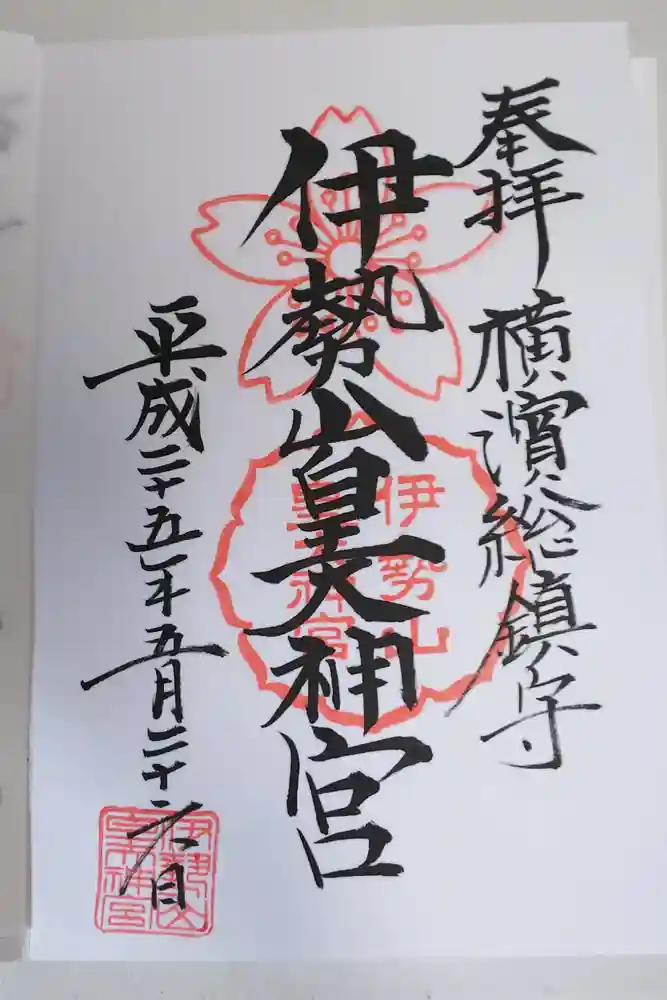 奉拝 横濱総鎮守
伊勢山皇大神宮
伊勢山
皇大神宮
平成二十五年五月二十六日
伊勢山
皇大神宮